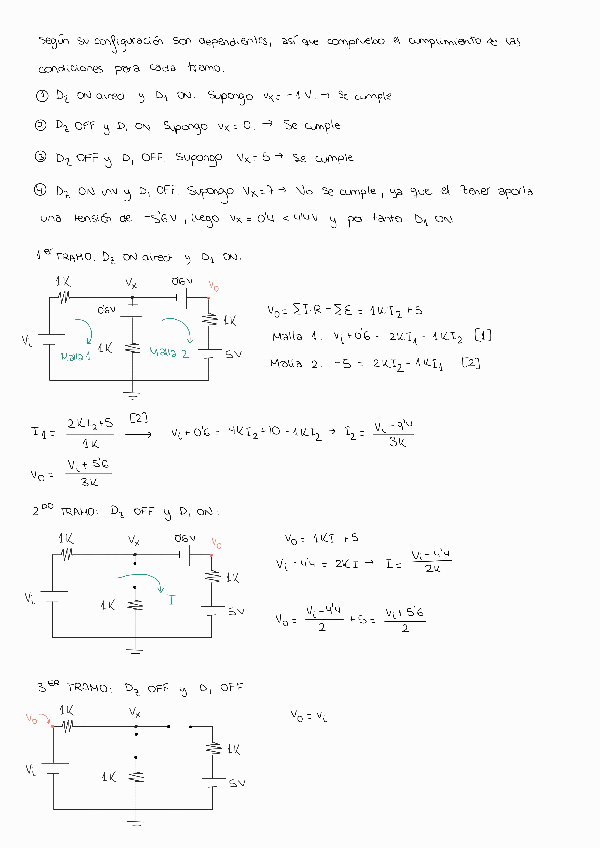 según su configuración son dependientes, así que compruebo el cumplimiento de las
condiciones para cada tramo.
① D₂ ON direct y D₁ ON. Supongo Vx = -1V. → Se cumple
② D₂ OFF y D₁ ON Supongo Vx = 0. → Se cumple
③ D₂ OFF y D₁ OFF Supongo Vx = 5 → Se cumple
④ D₂ ON inv y D₁ OFF. Supongo Vx = 7 → No se cumple, ya que el zener aporta
una tensión de -5'6V, luego Vx = 0'4 < 4'4V y por tanto D₁ ON.
1er TRAMO. D₂ ON direct y D₁ ON.
1K Vx 0'6V Vo
0'6V
1K
Vi Malla 1 1K Malla 2 5V
Vo = ΣI·R - ΣE = 1K I₂ + 5
Malla 1. Vi + 0'6 = 2KI₁ - 1KI₂ [1]
Malla 2. -5 = 2KI₂ - 1KI₁ [2]
I₁ = (2KI₂+5)/1K [2] → Vi + 0'6 = 4KI₂ + 10 - 1KI₂ → I₂ = (Vi - 9'4)/3K
Vo = (Vi + 5'6)/3K
2DO TRAMO: D₂ OFF y D₁ ON.
1K Vx 0'6V Vo
1K
Vi 1K I 5V
Vo = 1KI + 5
Vi - 4'4 = 2KI → I = (Vi - 4'4)/2K
Vo = (Vi - 4'4)/2 + 5 = (Vi + 5'6)/2
3ER TRAMO: D₂ OFF y D₁ OFF
Vo 1K Vx
1K
Vi 1K 5V
Vo = Vi